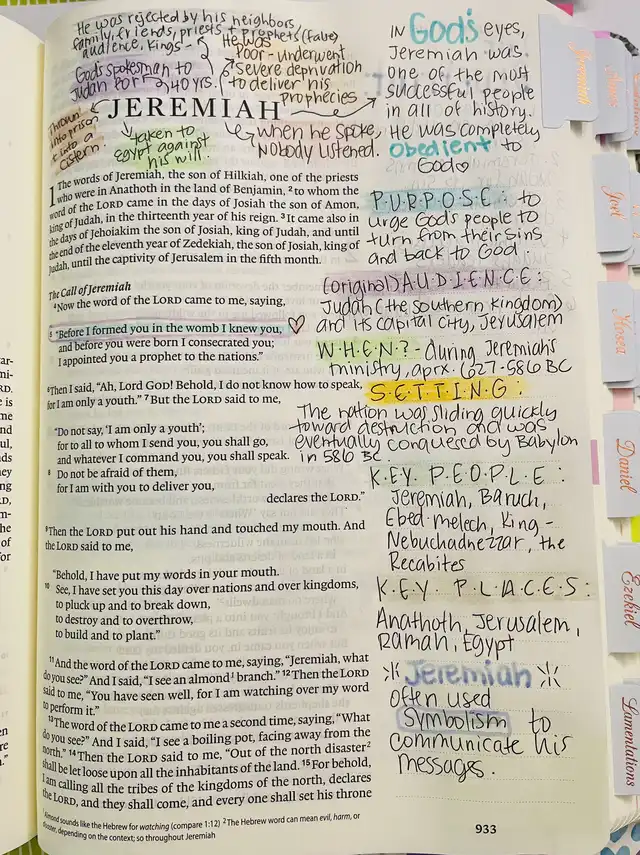 He was rejected by his neighbors
family, friends, priests + prophets (false)
audience, Kings -
God's spokesman to
Judah for 40 yrs.
He was
Poor - underwent
severe deprivation
to deliver his
prophecies
Thrown
into prison
+ into a
cistern.
JEREMIAH
taken to
Egypt against
his will.
when he spoke,
NObody listened.
IN God's eyes,
Jeremiah was
one of the most
successful people
in all of history.
He was completely
obedient to
God
1 The words of Jeremiah, the son of Hilkiah, one of the priests
who were in Anathoth in the land of Benjamin, 2 to whom the
word of the LORD came in the days of Josiah the son of Amon,
king of Judah, in the thirteenth year of his reign. 3 It came also in
the days of Jehoiakim the son of Josiah, king of Judah, and until
the end of the eleventh year of Zedekiah, the son of Josiah, king of
Judah, until the captivity of Jerusalem in the fifth month.
The Call of Jeremiah
4 Now the word of the LORD came to me, saying,
5 "Before I formed you in the womb I knew you,
and before you were born I consecrated you;
I appointed you a prophet to the nations."
6 Then I said, "Ah, Lord GOD! Behold, I do not know how to speak,
for I am only a youth." 7 But the LORD said to me,
"Do not say, 'I am only a youth';
for to all to whom I send you, you shall go,
and whatever I command you, you shall speak.
8 Do not be afraid of them,
for I am with you to deliver you,
declares the LORD."
9 Then the LORD put out his hand and touched my mouth. And
the LORD said to me,
"Behold, I have put my words in your mouth.
10 See, I have set you this day over nations and over kingdoms,
to pluck up and to break down,
to destroy and to overthrow,
to build and to plant."
11 And the word of the LORD came to me, saying, "Jeremiah, what
do you see?" And I said, "I see an almond1 branch." 12 Then the LORD
said to me, "You have seen well, for I am watching over my word
to perform it."
13 The word of the LORD came to me a second time, saying, "What
do you see?" And I said, "I see a boiling pot, facing away from the
north." 14 Then the LORD said to me, "Out of the north disaster2
shall be let loose upon all the inhabitants of the land. 15 For behold,
I am calling all the tribes of the kingdoms of the north, declares
the LORD, and they shall come, and every one shall set his throne
1 Almond sounds like the Hebrew for watching (compare 1:12) 2 The Hebrew word can mean evil, harm, or
disaster, depending on the context; so throughout Jeremiah
P·U·R·P·O·S·E: to
urge God's people to
turn from their sins
and back to God.
(original) A·U·D·I·E·N·C·E:
Judah (the southern Kingdom)
and its capital city, Jerusalem
W·H·E·N·? - during Jeremiah's
ministry, aprx. 627-586 BC
S·E·T·T·I·N·G:
The nation was sliding quickly
toward destruction and was
eventually conquered by Babylon
in 586 BC.
K·E·Y P·E·O·P·L·E:
Jeremiah, Baruch,
Ebed-melech, King -
Nebuchadnezzar, the
Recabites
K·E·Y P·L·A·C·E·S:
Anathoth, Jerusalem,
Ramah, Egypt
Jeremiah
often used
symbolism to
communicate his
messages.
933
Jeremiah
Joel
Hosea
Daniel
Ezekiel
Lamentations